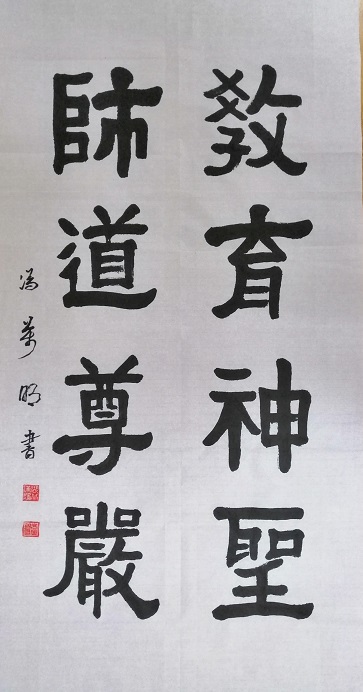 教育神聖
師道尊嚴
馮萬明書